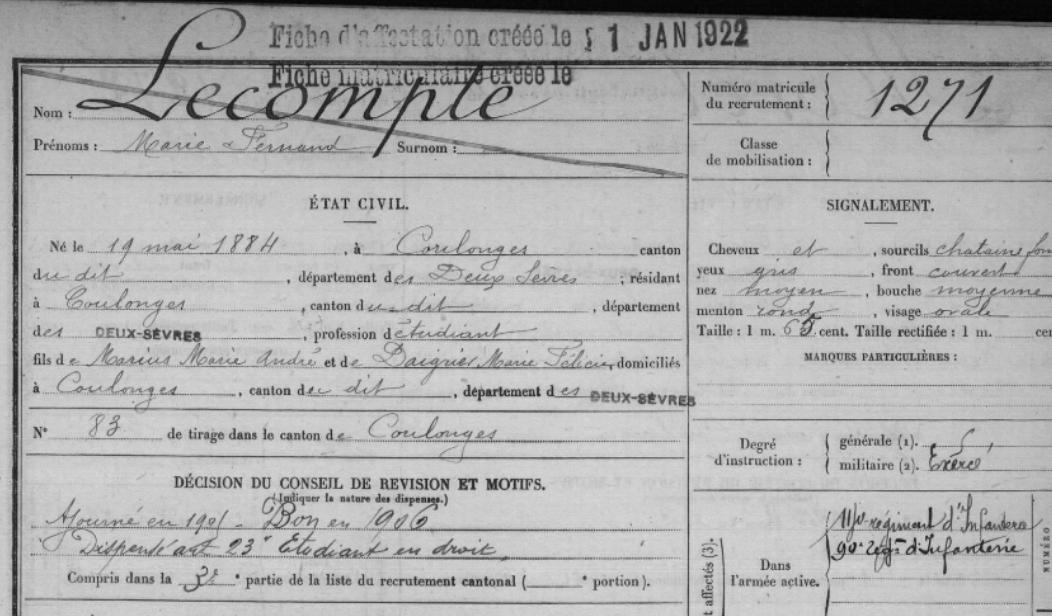 Fiche d'affectation créée le 1 JAN 1922
Fiche matriculaire créée le
Nom : Lecomple
Prénoms : Marie Fernand Surnom :
Numéro matricule du recrutement : 1271
Classe de mobilisation :
ÉTAT CIVIL.
Né le 19 mai 1884, à Coulonges canton
du dit, département des Deux Sèvres, résidant
à Coulonges, canton du dit, département
des DEUX-SÈVRES, profession d étudiant
fils de Marius Marie André et de Daignier Marie Félicie, domiciliés
à Coulonges, canton du dit, département des DEUX-SÈVRES
N° 83 de tirage dans le canton de Coulonges
DÉCISION DU CONSEIL DE REVISION ET MOTIFS.
(Indiquer la nature des dispenses.)
Ajourné en 1905 - Bon en 1906
Dispensé art 23 Etudiant en droit
Compris dans la 3e partie de la liste du recrutement cantonal ( portion).
SIGNALEMENT.
Cheveux et, sourcils chatains
yeux gris, front couvert
nez moyen, bouche moyenne
menton rond, visage ovale
Taille : 1 m. 65 cent. Taille rectifiée : 1 m. cen
MARQUES PARTICULIÈRES :
Degré d'instruction :
générale (1).
militaire (2). Exercé
affectés (3).
Dans l'armée active.
114e régiment d'Infanterie
90e régt d'Infanterie
NUMÉRO